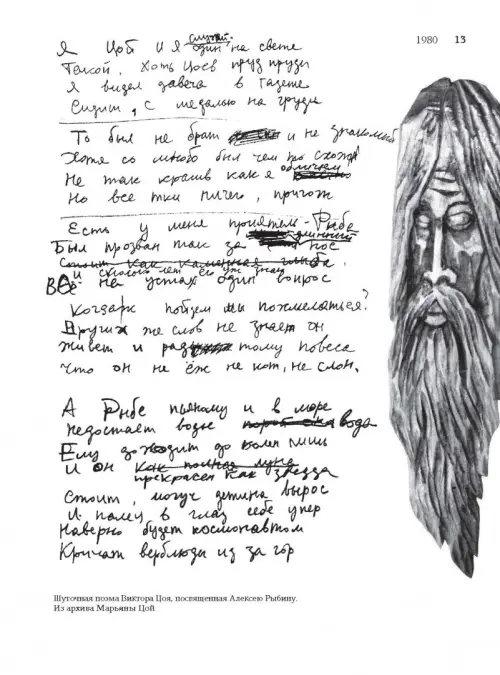 1980 13
случай.
Я Цой и я один на свете
Такой, хоть Цоев пруд пруди
Я видел давеча в газете
Сидит, с медалью на груди
То был не брат и не знакомый
Хотя со мною был чем то схож
облич
Не так красив как я
Но все тки ничего, пригож
Есть у меня приятель - Рыба
длинный
Был прозван так за нос
стоит как каменная глыба.
и сколько лет его уж знаю
Всё на устах один вопрос
Когда ж пойдем мы похмеляться?
Других же слов не знает он
Живет и рад тому повеса
Что он не ёж не кот, не слон.
А Рыбе пьяному и в море
недостает воды вода
Ему доходит до колен лишь
И он как полная луна
прекрасен как звезда
Стоит, могуч детина вырос
И палец в глаз себе упер
Наверно будет космонавтом
Кричат верблюды из за гор
Шуточная поэма Виктора Цоя, посвященная Алексею Рыбину.
Из архива Марьяны Цой